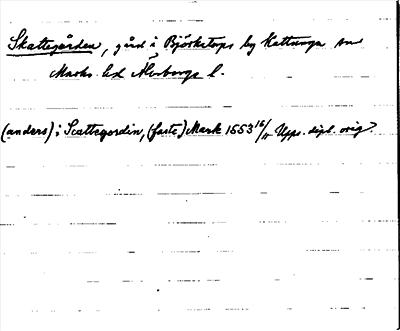 Skattegården, gård i Björketorps by Kattunga sn
Marks hd Älvsborgs l.
(anders) i Scattegordin, (faste) Mark 1553 16/11 Upps. dipl. orig.